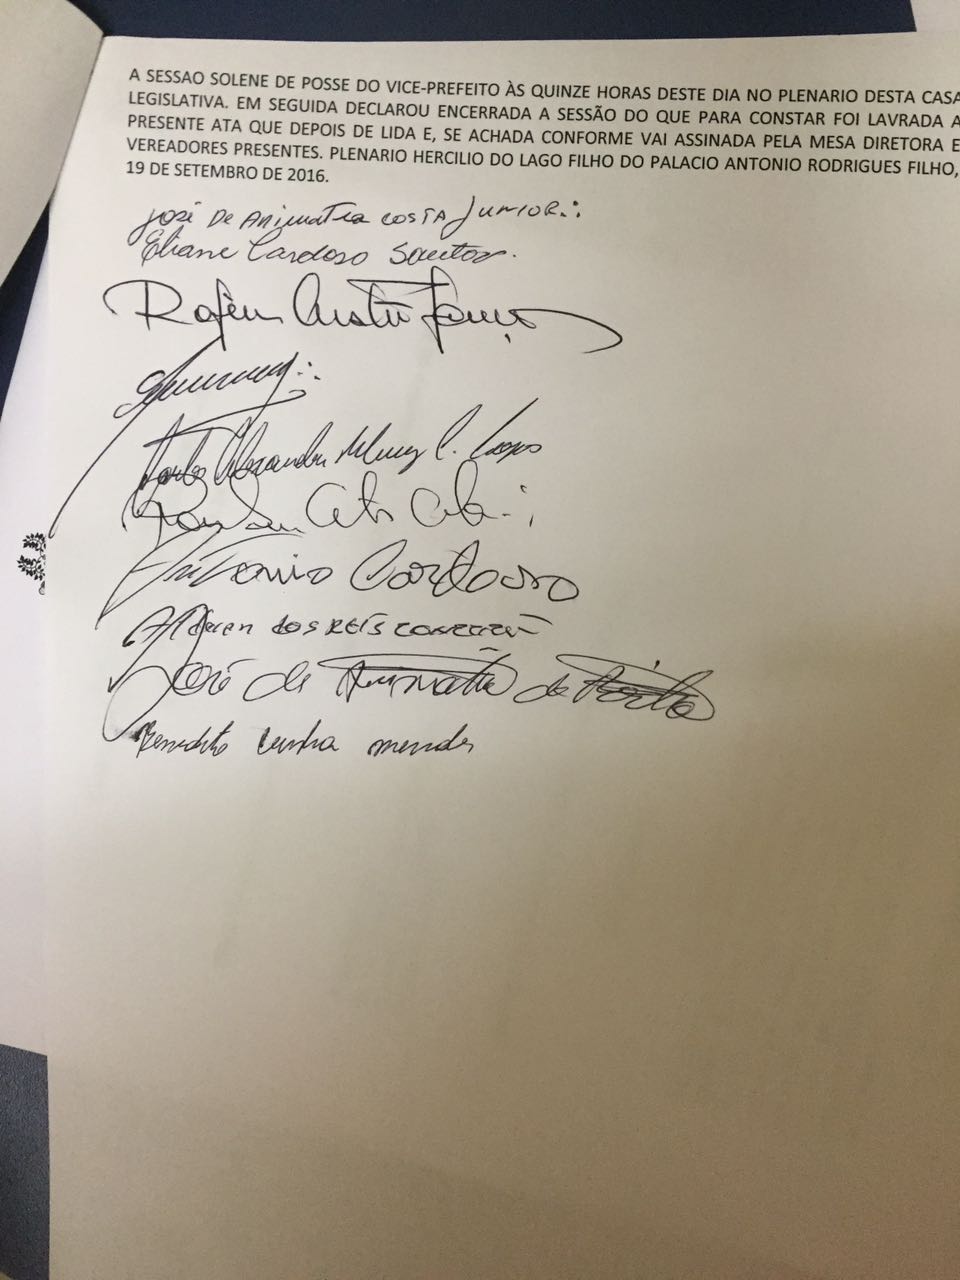 A SESSAO SOLENE DE POSSE DO VICE-PREFEITO ÀS QUINZE HORAS DESTE DIA NO PLENARIO DESTA CASA
LEGISLATIVA. EM SEGUIDA DECLAROU ENCERRADA A SESSÃO DO QUE PARA CONSTAR FOI LAVRADA A
PRESENTE ATA QUE DEPOIS DE LIDA E, SE ACHADA CONFORME VAI ASSINADA PELA MESA DIRETORA E
VEREADORES PRESENTES. PLENARIO HERCILIO DO LAGO FILHO DO PALACIO ANTONIO RODRIGUES FILHO,
19 DE SETEMBRO DE 2016.
José De Arimatea COSTA JUNIOR
Eliane Cardoso Santos
Antonio Cardoso
DOS REIS
José de Arimatéa da
Benedito Cunha mendes